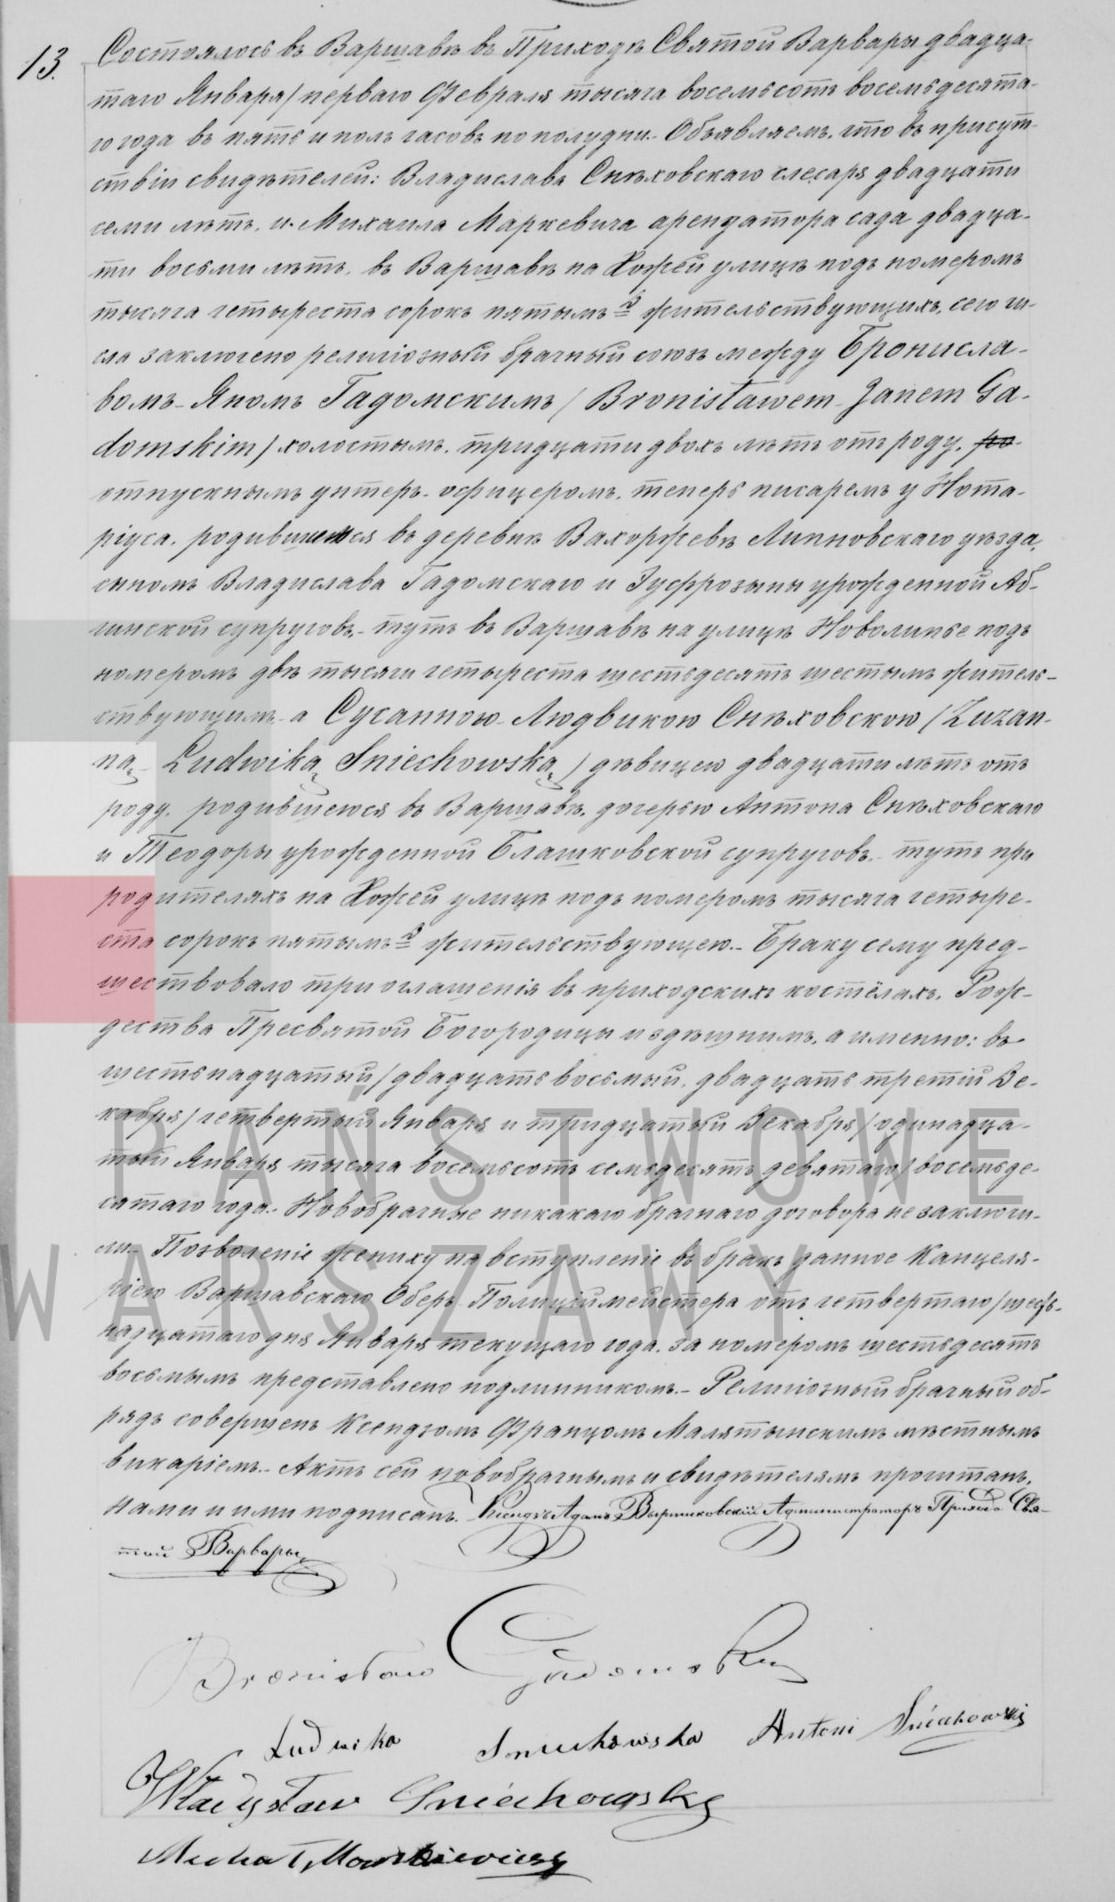 13.
Состоялось въ Варшавѣ въ Приходѣ Святой Варвары двадца-
таго Января/перваго Февраля тысяча восемьсотъ восемьдесята-
го года въ пять и полъ часовъ по полудни. Объявляемъ, что въ присут-
ствіи свидѣтелей: Владислава Снѣховскаго слесаря двадцати
семи лѣтъ, и Михаила Маркевича арендатора сада двадца-
ти восьми лѣтъ, въ Варшавѣ на Хожей улицѣ подъ номеромъ
тысяча четыреста сорокъ пятымъ жительствующихъ, сего чи-
сла заключено религіозный брачный союзъ между Бронисла-
вомъ-Яномъ Гадомскимъ /Bronisławem-Janem Ga-
domskim/ холостымъ, тридцати двохъ лѣтъ отъ роду,
отпускнымъ унтеръ-офицеромъ, теперь писаремъ у Нота-
ріуса, родившемся въ деревнѣ Вахоржевѣ Липновскаго уѣзда,
сыномъ Владислава Гадомскаго и Эуфрозыны урожденной Аб-
чинской супруговъ, тутъ въ Варшавѣ на улицѣ Новолипье подъ
номеромъ двѣ тысячи четыреста шестьдесятъ шестымъ житель-
ствующимъ - а Сусанною-Людвикою Снѣховскою /Zuzan-
ną Ludwiką Sniechowską/ дѣвицею двадцати лѣтъ отъ
роду, родившеюся въ Варшавѣ, дочерью Антона Снѣховскаго
и Теодоры урожденной Блашковской супруговъ, тутъ при
родителяхъ на Хожей улицѣ подъ номеромъ тысяча четыре-
ста сорокъ пятымъ жительствующею. Браку сему пред-
шествовало три оглашенія въ приходскихъ костёлахъ, Рож-
дества Пресвятой Богородицы и здѣшнимъ, а именно: въ
шестьнадцатый/двадцать восьмый, двадцать третій Де-
кабря/четвертый Января и тридцатый Декабря/одинадца-
тый Января тысяча восемьсотъ семьдесятъ девятаго/восемьде-
сятаго года. Новобрачные никакаго брачнаго договора не заключи-
ли. Позволеніе жениху на вступленіе въ бракъ данное Канцеля-
ріею Варшавскаго Оберъ Полиціймейстера отъ четвертаго/шест-
надцатаго дня Января текущаго года, за номеромъ шестьдесятъ
восьмымъ представлено подлинникомъ. Религіозный брачный об-
рядъ совершенъ Ксендзомъ Францомъ Малятынскимъ мѣстнымъ
викаріемъ. Актъ сей новобрачнымъ и свидѣтелямъ прочитанъ,
нами и ими подписанъ. Ксендзъ Адамъ Администраторъ Прихода Свя-
той Варвары
Bronisław Gadomski
Ludwika Sniechowska Antoni Sniechowski
Władysław Sniechowski
Michał Markiewicz
PAŃSTWOWE
WARSZAWY